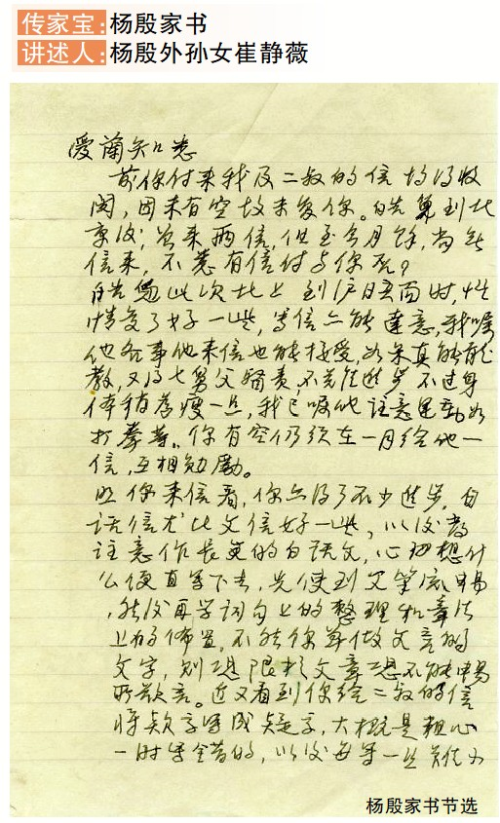 传家宝：杨殷家书
讲述人：杨殷外孙女崔静薇
爱兰知悉
前你付来我及二叔的信均得收
阅，因未有空故未复你。皓 到北
京后，曾来两信，但至今月余，尚无
信来，不悉有信付与你否？
此次北上到沪 面时，性
情变了好一些，写信亦能达意，我嘱
他各事他来信也能接受，如果真能
教，又得七舅父 责 不 进步 不过身
体稍为瘦一点，我已嘱他注意运动如
打拳等。你有空仍须在一月给他一
信，互相勉励。
照你来信看，你亦得了不少进步，白
话信尤比文信好一些，以后若
注意作长点的白话文，心里想什
么便直写下去，先使到文笔流畅
，然后再学词句上的整理和章法
上的佈置，不然你单做文言的
文字，则恐限于文章恐不能畅
所欲言。近又看到你给二叔的信
将款字写成疑字，大概是粗心
一时写错的，以后每写一
杨殷家书节选